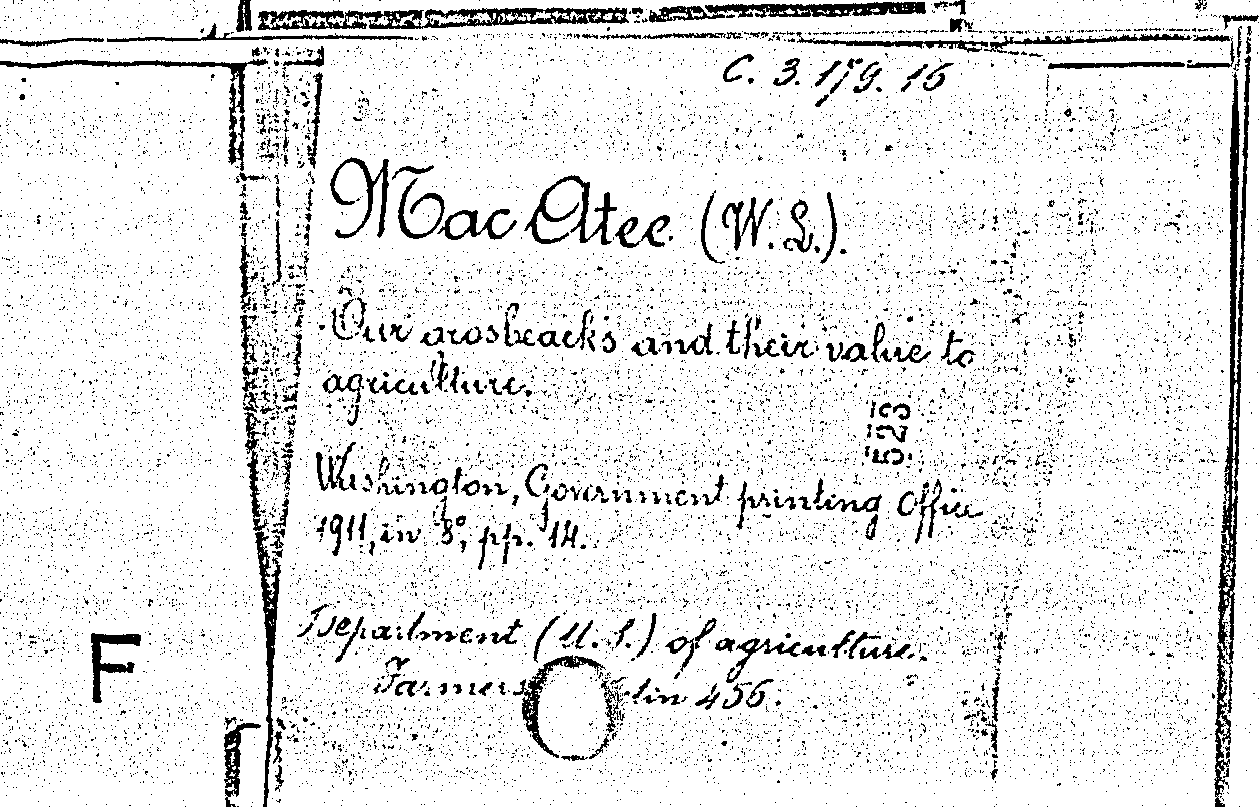 C. 3. 179. 16
Mac Atee (W. L.).
Our grosbeacks and their value to
agriculture.
523
Washington, Government printing Office
1911, in 8°, pp. 14.
Department (U. S.) of agriculture.
Farmers tin 456.
F